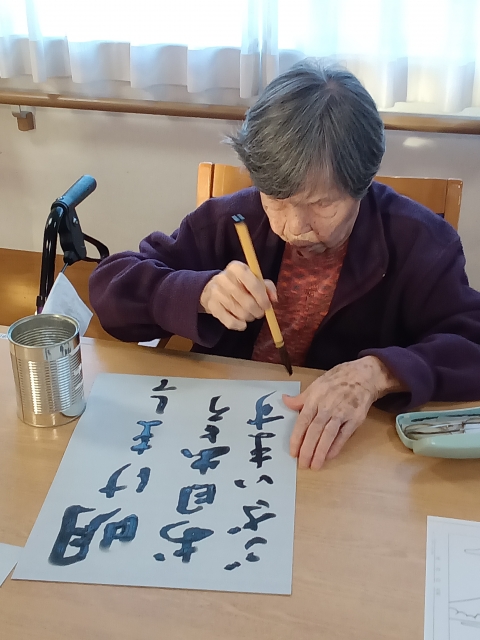 明けまして
おめでとう
ございます